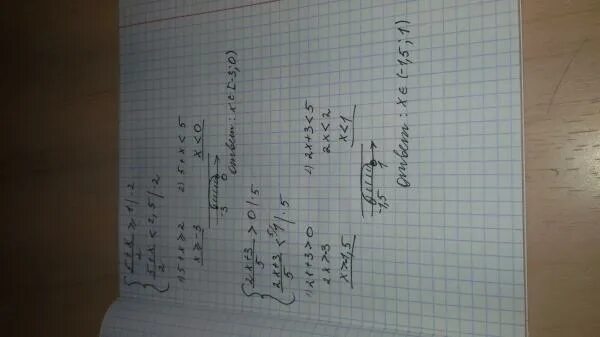 { 5+x/2 ≥ 1 |·2
{ 5+x/2 < 2,5 |·2
1) 5+x ≥ 2   2) 5+x < 5
x ≥ -3   x < 0
-3   0
ответ: x ∈ [-3; 0)
{ 2x+3/5 > 0 |·5
{ 2x+3/5 < 1 |·5
1) 2x+3 > 0   2) 2x+3 < 5
2x > -3   2x < 2
x > -1,5   x < 1
-1,5   1
ответ: x ∈ (-1,5; 1)